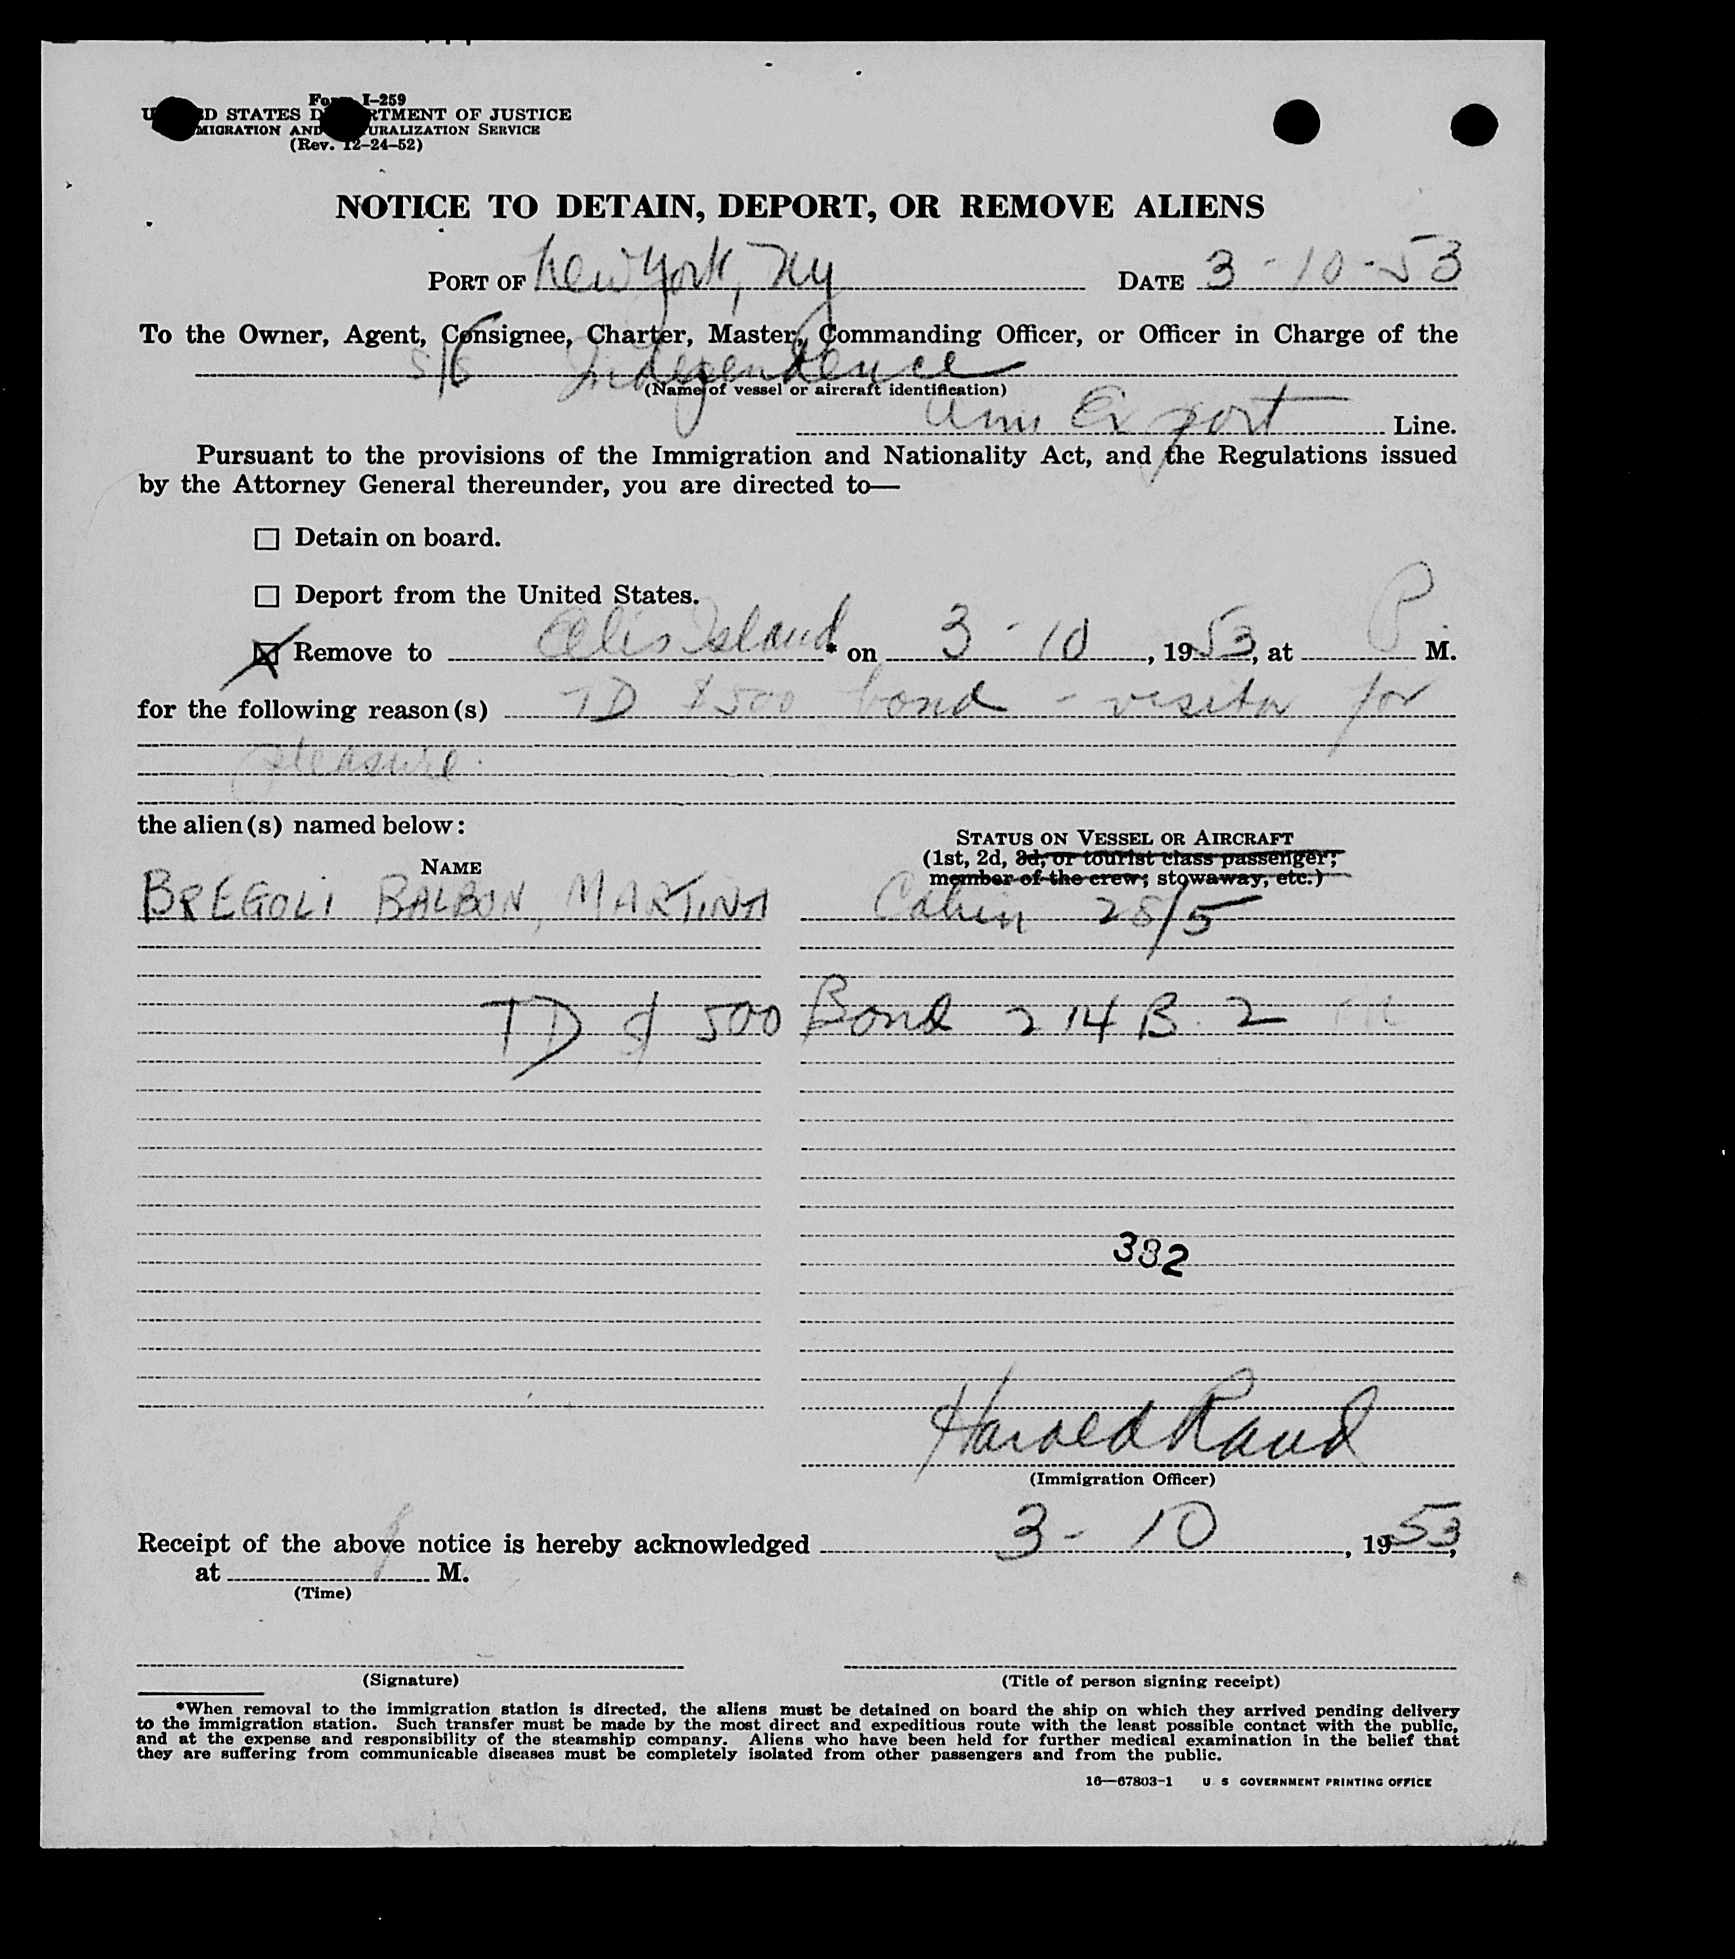 Form I-259
UNITED STATES DEPARTMENT OF JUSTICE
IMMIGRATION AND NATURALIZATION SERVICE
(Rev. 12-24-52)
NOTICE TO DETAIN, DEPORT, OR REMOVE ALIENS
PORT OF New York, Ny DATE 3-10-53
To the Owner, Agent, Consignee, Charter, Master, Commanding Officer, or Officer in Charge of the
S/S Independence
(Name of vessel or aircraft identification)
Am Export Line.
Pursuant to the provisions of the Immigration and Nationality Act, and the Regulations issued
by the Attorney General thereunder, you are directed to—
☐ Detain on board.
☐ Deport from the United States.
☒ Remove to Ellis Island * on 3-10, 1953, at P. M.
for the following reason(s) TD $500 bond - visitor for
pleasure.
the alien(s) named below:
STATUS ON VESSEL OR AIRCRAFT
(1st, 2d, 3d, or tourist class passenger;
member of the crew; stowaway, etc.)
NAME
BREGOLI BALBON, MARTINA Cabin 28/5
TD $500 Bond 214 B. 2
382
Harold Rand
(Immigration Officer)
Receipt of the above notice is hereby acknowledged 3-10, 1953,
at M.
(Time)
(Signature) (Title of person signing receipt)
*When removal to the immigration station is directed, the aliens must be detained on board the ship on which they arrived pending delivery
to the immigration station. Such transfer must be made by the most direct and expeditious route with the least possible contact with the public,
and at the expense and responsibility of the steamship company. Aliens who have been held for further medical examination in the belief that
they are suffering from communicable diseases must be completely isolated from other passengers and from the public.
16—67803-1 U S GOVERNMENT PRINTING OFFICE